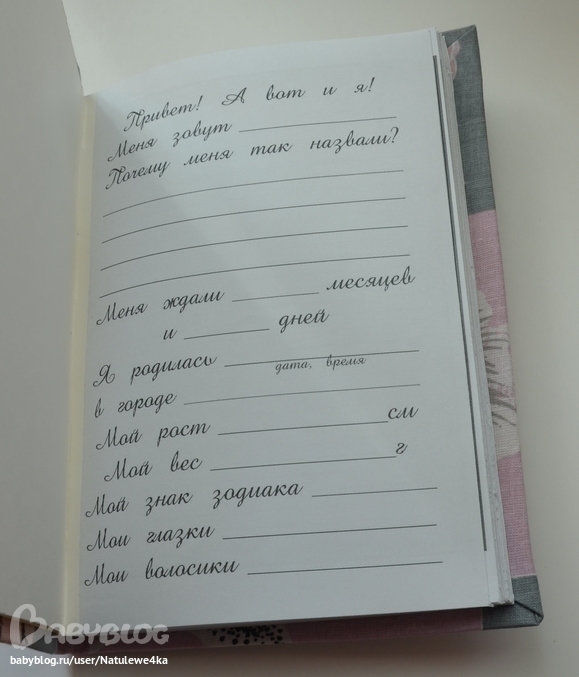 Привет! А вот и я!
Меня зовут
Почему меня так назвали?
Меня ждали месяцев
и дней
Я родилась
дата, время
в городе
Мой рост см
Мой вес г
Мой знак зодиака
Мои глазки
Мои волосики
BABYBLOG
babyblog.ru/user/Natulewe4ka